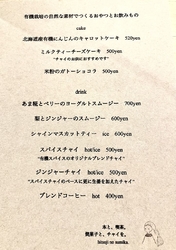 有機栽培の自然な素材でつくるおやつとお飲みもの
cake
北海道産有機にんじんのキャロットケーキ 520yen
ミルクティーチーズケーキ 500yen
"チャイのお供におすすめです"
米粉のガトーショコラ 500yen
drink
あま糀とベリーのヨーグルトスムージー 700yen
梨とジンジャーのスムージー 600yen
シャインマスカットティー ice 600yen
スパイスチャイ hot/ice 500yen
"有機スパイスのオリジナルブレンドチャイ"
ジンジャーチャイ hot/ice 550yen
"スパイスチャイのベースに更に生姜を加えたチャイ"
ブレンドコーヒー hot 400yen
本と、喫茶。
焼菓子と、チャイを。
hitsuji no sumika.